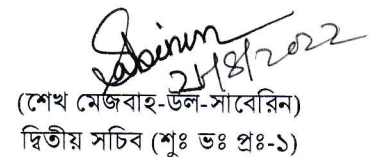 Sabinin
21/8/2022
(শেখ মেজবাহ-উল-সাবেরিন)
দ্বিতীয় সচিব (শুঃ ভঃ প্রঃ-১)